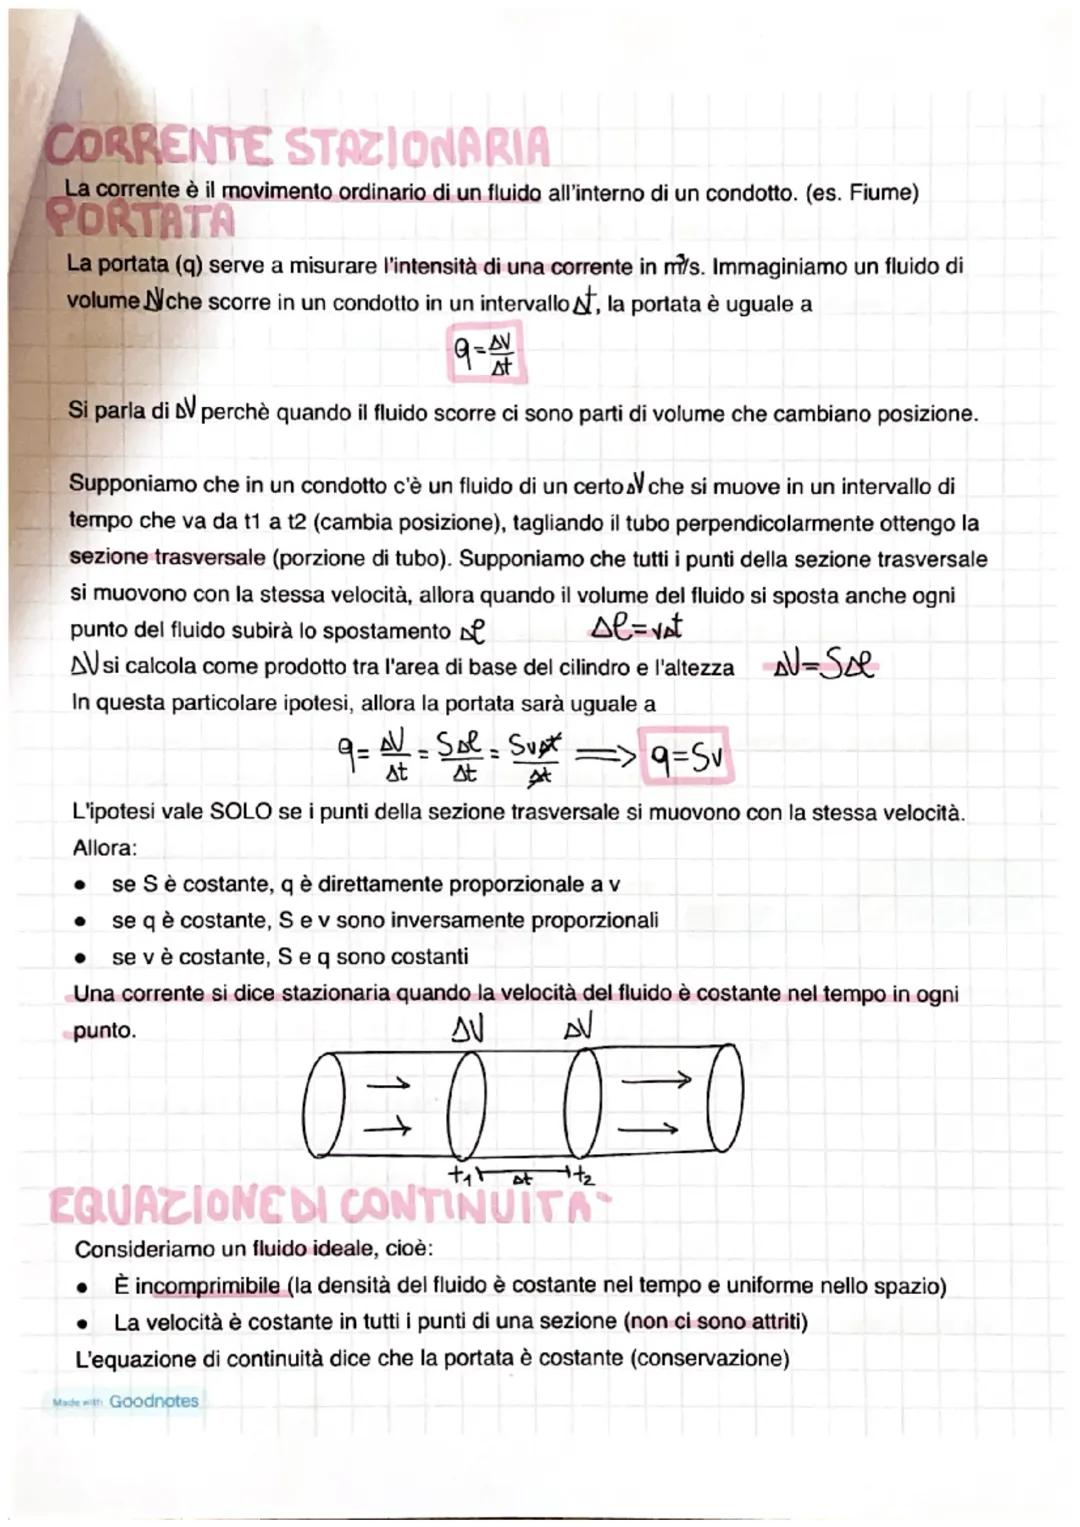 CORRENTE STAZIONARIA
La corrente è il movimento ordinario di un fluido all'interno di un condotto. (es. Fiume)
PORTATA
La portata (q) serve a misurare l'intensità di una corrente in m³/s. Immaginiamo un fluido di
volume ΔV che scorre in un condotto in un intervallo Δt, la portata è uguale a
q=ΔV/Δt
Si parla di ΔV perchè quando il fluido scorre ci sono parti di volume che cambiano posizione.
Supponiamo che in un condotto c'è un fluido di un certo ΔV che si muove in un intervallo di
tempo che va da t1 a t2 (cambia posizione), tagliando il tubo perpendicolarmente ottengo la
sezione trasversale (porzione di tubo). Supponiamo che tutti i punti della sezione trasversale
si muovono con la stessa velocità, allora quando il volume del fluido si sposta anche ogni
punto del fluido subirà lo spostamento Δl Δl=vΔt
ΔV si calcola come prodotto tra l'area di base del cilindro e l'altezza ΔV=SΔl
In questa particolare ipotesi, allora la portata sarà uguale a
q=ΔV/Δt=SΔl/Δt=SvΔt/Δt ⟹ q=Sv
L'ipotesi vale SOLO se i punti della sezione trasversale si muovono con la stessa velocità.
Allora:
• se S è costante, q è direttamente proporzionale a v
• se q è costante, S e v sono inversamente proporzionali
• se v è costante, S e q sono costanti
Una corrente si dice stazionaria quando la velocità del fluido è costante nel tempo in ogni
punto.
ΔV ΔV
t1 Δt t2
EQUAZIONE DI CONTINUITA'
Consideriamo un fluido ideale, cioè:
• È incomprimibile (la densità del fluido è costante nel tempo e uniforme nello spazio)
• La velocità è costante in tutti i punti di una sezione (non ci sono attriti)
L'equazione di continuità dice che la portata è costante (conservazione)
Made with Goodnotes